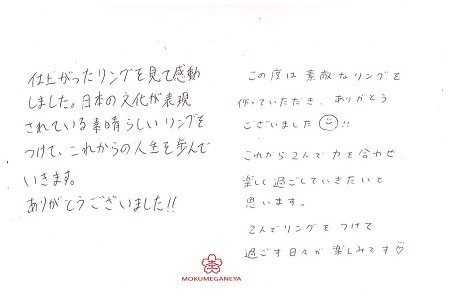 仕上がったリングを見て感動
しました。日本の文化が表現
されている素晴らしいリングを
つけて、これからの人生を歩んで
いきます。
ありがとうございました!!
この度は素敵なリングを
作っていただき、ありがとう
ございました!!
これから2人で力を合わせ
楽しく過ごしていきたいと
思います。
2人でリングをつけて
過ごす日々が楽しみです♡
MOKUMEGANEYA